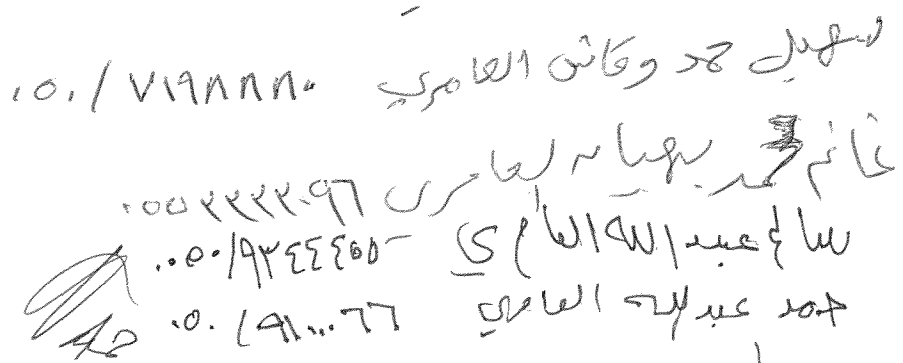 سهيل حمد وقاش العامري ٠٥٠/٧١٩٨٨٨٠
غانم محمد سهيل العامري ٠٥٥٢٢٢٢٠٩٦
سالم عبد الله العامري ٠٥٠/٩٣٤٤٤٥٥
حمد عبدالله العامري ٠٥٠/٩٨٠٠٠٦٦